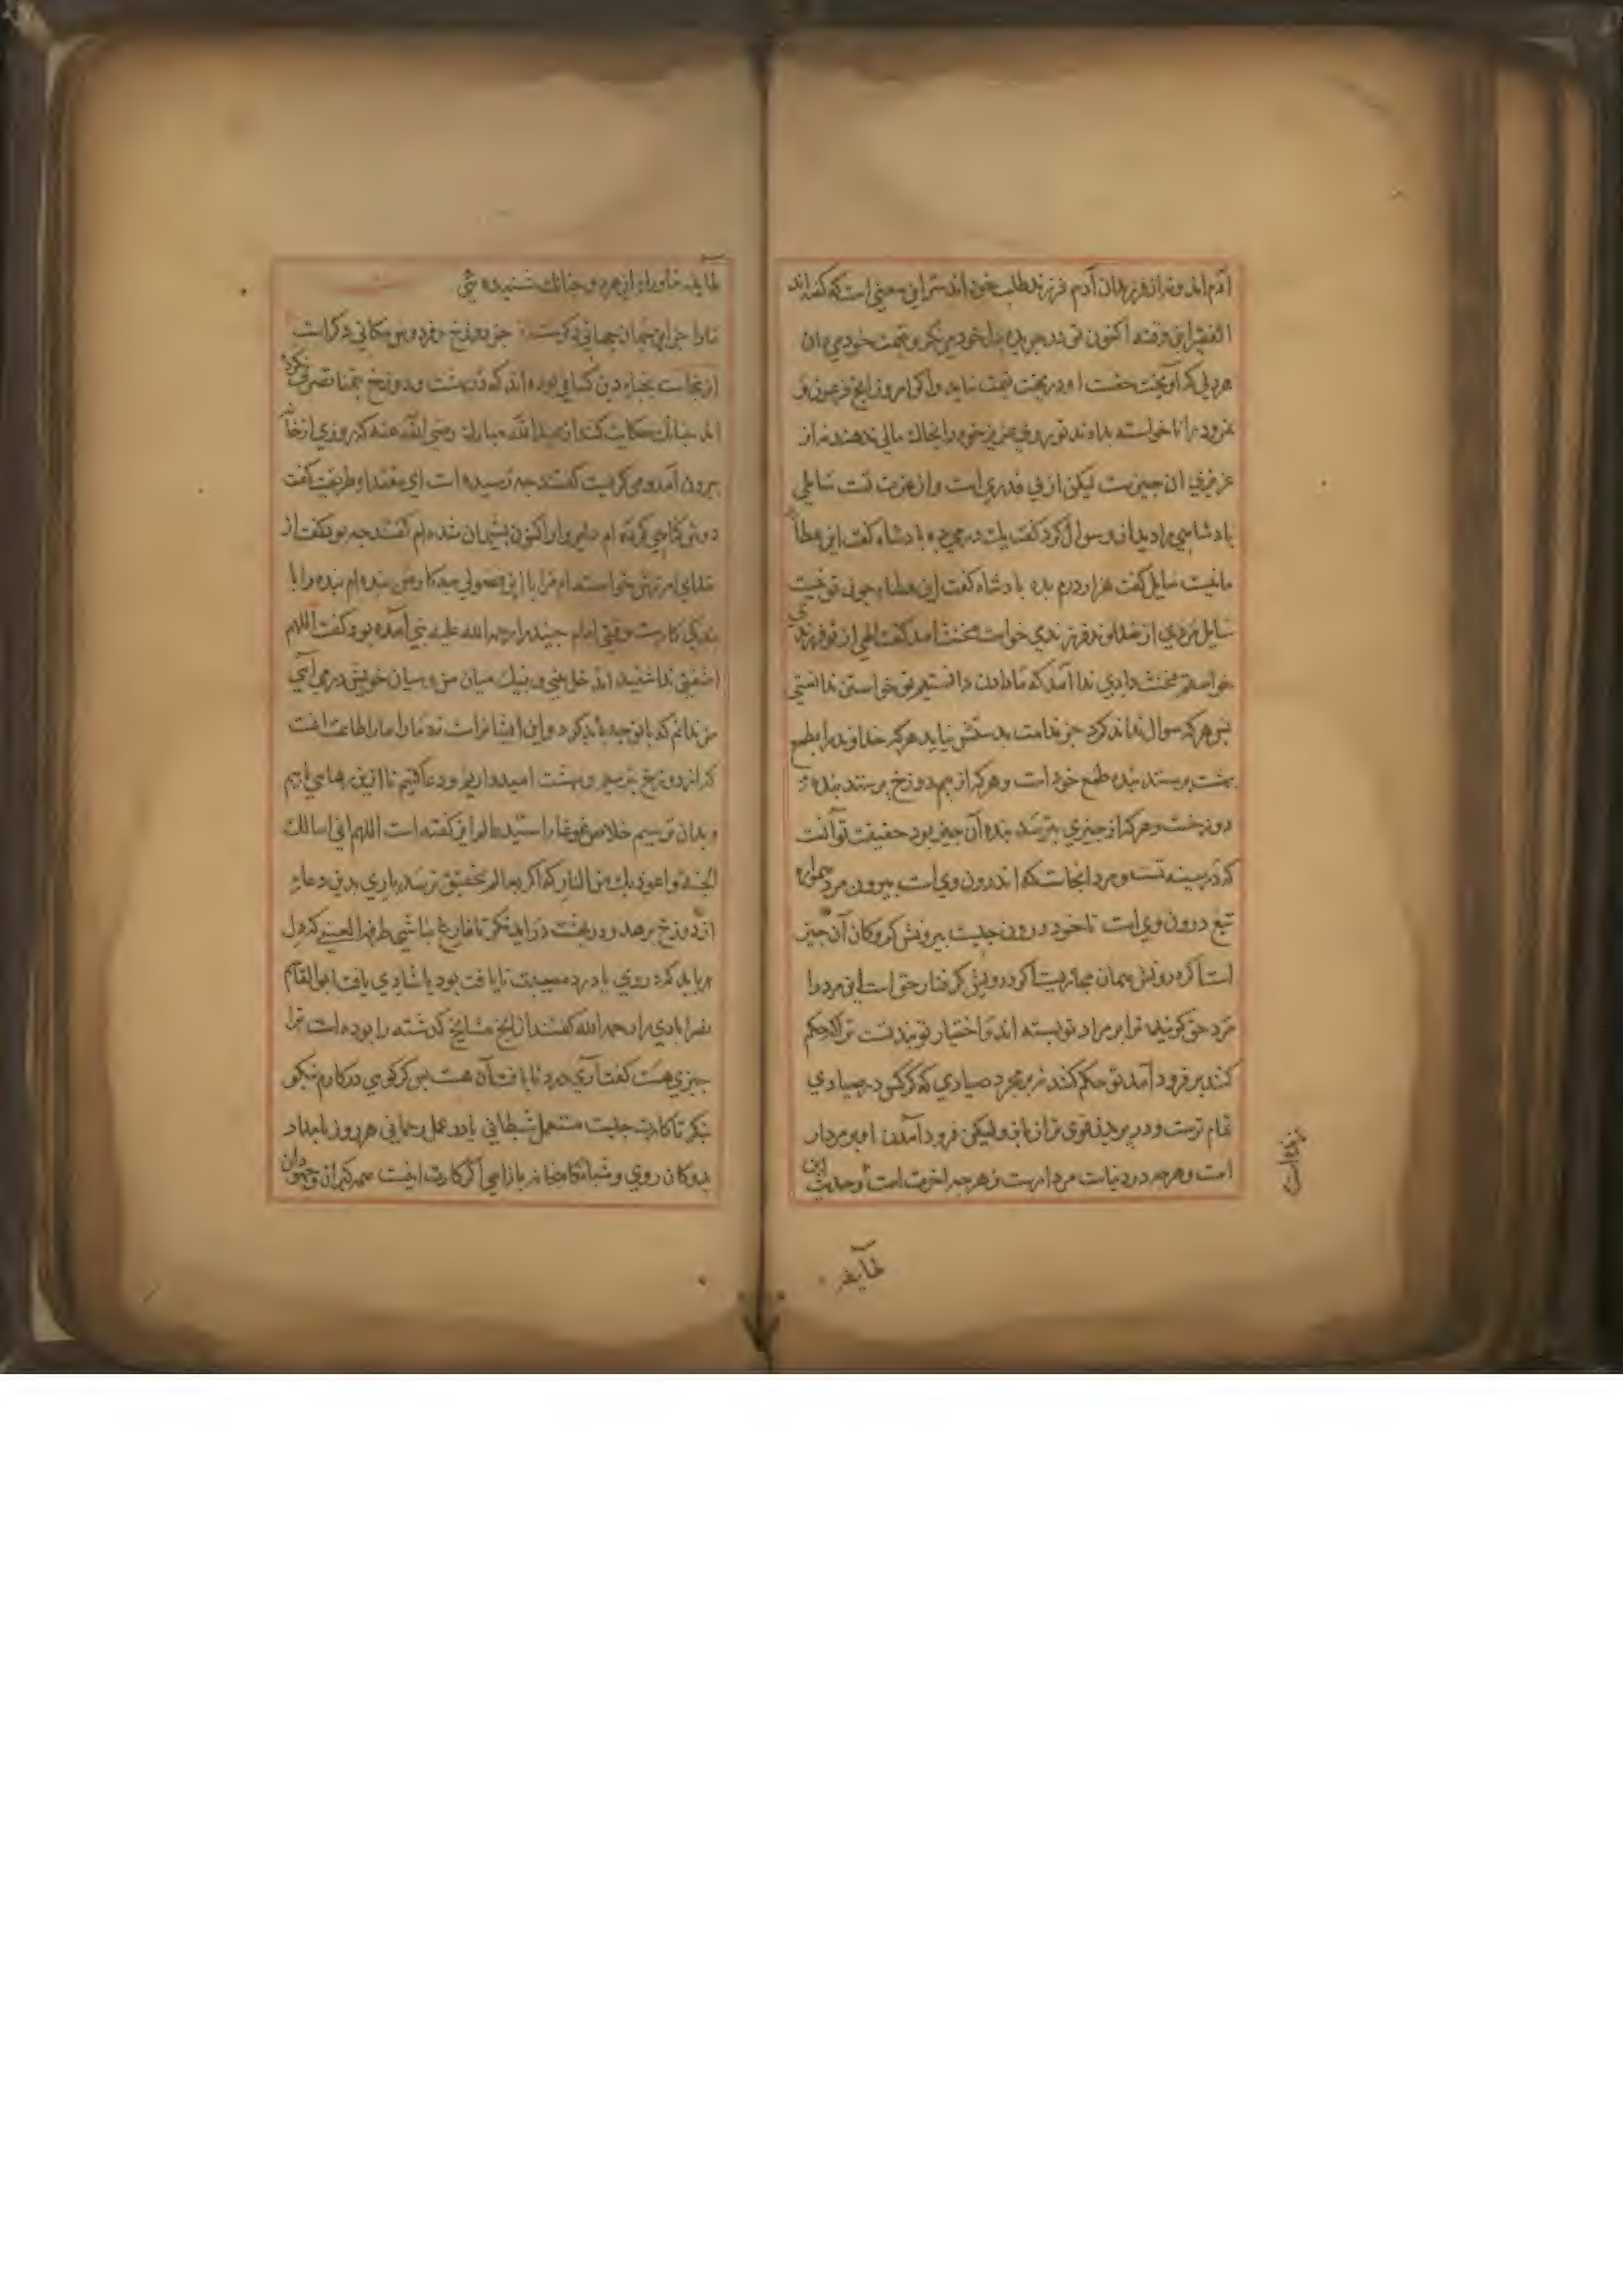 آدم اند و نه از فرزندان آدم فرزند طلب خود اند سر این معنی است که گفته اند
الفقیر ابن وقته اکنون تو در جریده دل خود می نکر و قیمت خود می دان
هر دلی که آویخت حقست او در بخت قیمت نیاید و اکر امروز ابخ فرعون و
نمرود را ناخواسته بدادند تو بروی عزیز خود را بخاک مالی ندهند نه از
عزیزی ان چیزست لیکن از بی قدری است و از عزت تست سایلی
بادشاهی را دید از وسوال کرد گفت یک درم بده بادشاه گفت این عطا
ما نیست سایل گفت هزار درم بده بادشاه گفت این عطا چون تو نیست
سایل مردی از خداوند فرزندی خواست مخنث امد گفت الهی از تو فرزندی
خواستم مخنث دادی ندا آمد که ما دادن دانستیم تو خواستن ندانستی
بس هر که سوال نداند کرد جز ندامت بدستش نیاید هر که خداوند را بطمع
بهشت برستد بنده طمع خود است و هر که از بیم دوزخ برستد بنده
دوزخست و هر که از چیزی بترسد بنده آن چیز بود حقیقت تو آنست
که در سینه تست و مرد انجاست که اندرون وی است بیرون مرد همواره
تبع درون وی است تا خود درون چیست بیرونش کروکان آن چیز
است اکر درونش مهمان مجاز است اکر درونش کرفتار حق است این مرد را
مرد حق کویند ترا بر مراد تو بسته اند و اختیار تو بند تست ترا که حکم
کنند بر فرود آمد تو حکم کنند نه بمجرد صیادی که کرکس در صیادی
تمام ترست و در بریدن قوی تر از باز ولیکن فرود آمدن او بر مردار
است و هرچه در دنیاست مردارست و هرچه اخرت است و حدیث این
طایفه
طایفه ماوراء این هر دو چنانک شنیده شی
ما را جز این جهان جهانی دکرست جز دوزخ و فردوس مکانی دکرست
از نجاست بخیاه دین کسانی بوده اند که در بهشت و دوزخ بتمنا تصرف نکرده
اند چنانک حکایت کنند از عبد الله مبارک رضی الله عنه که روزی از خانه
بیرون آمد و می کریست گفتند چه رسیده است ای مقتداء طریقت گفت
دوش گناهی کرده ام دلیروار اکنون بشیمان شده ام گفتند چه بود گفت از
خدای امرزش خواسته ام مرا با این فضولی چه کار من بنده ام بنده را با
بندکی کارست وقتی امام جنید را رحمه الله علیه تبی آمده بود گفت اللهم
اشفنی ندا شنید اند خل بینی و بینک میان من و میان خویش در می آیی
من ندانم که با تو چه باید کرد و این افشا تراست نه ما را ما را طاعت انست
که از دوزخ بترسیم و بهشت امید داریم و دعا کنیم تا از این برهاهی یابیم
و بدان برسیم خلاصه وغا را سید عالم این گفته است اللهم انی اسالک
الجنة و اعوذ بک من النار که اکر بعالم تحقیق نرسد باری بدین دعا
از دوزخ برهد و در بهشت در اید نکر تا فارغ نباشی طرفة العینی که دل
می باید کرد روی با درد مصیبت نایافت بود یا شادی یافت ابو القاسم
نصرابادی را رحمه الله گفتند از ابخ مشایخ کذشته را بوده است ترا
چیزی هست گفت آری درد نایافت آن هست بس کر کویی در کارم نیکو
بنکر تا کارت چیست مستعمل شیطانی یا در عمل رحمانی هر روز بامداد
بدوکان روی و شبانکاه بخانه باز ایی اکر کارت اینست همه کبران و جهودان